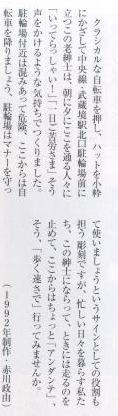 クラシカルな自転車を押し、ハットを小粋
にかざして中央線・武蔵境駅北口駐輪場前に
立つこの老紳士は、朝に夕にここを通る人々に
「いってらっしゃい！」「一日ご苦労さま」そう
声をかけるような気持ちでつくりました。
駐輪場付近は混みあって危い、ここからは自
転車を降りましょう、駐輪場はマナーを守っ
て使いましょうというサインとしての役割も
担う彫刻ですが、忙しい日々を暮らす私た
ち、この紳士にならって、ときには足るのを
止めて、ここからはちょっと「アンダンテ」、
そう、「歩く速さで」行ってみませんか。
（1992年制作・赤川政由）